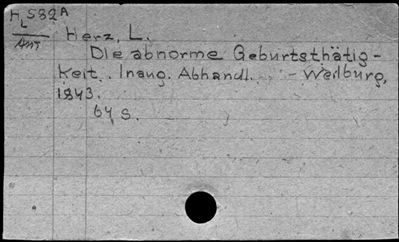 HL 532 A
Ant
Herz, L.
Die abnorme Geburtsthätig-
keit. Inaug. Abhandl. - Weilburg,
1843.
64 S.